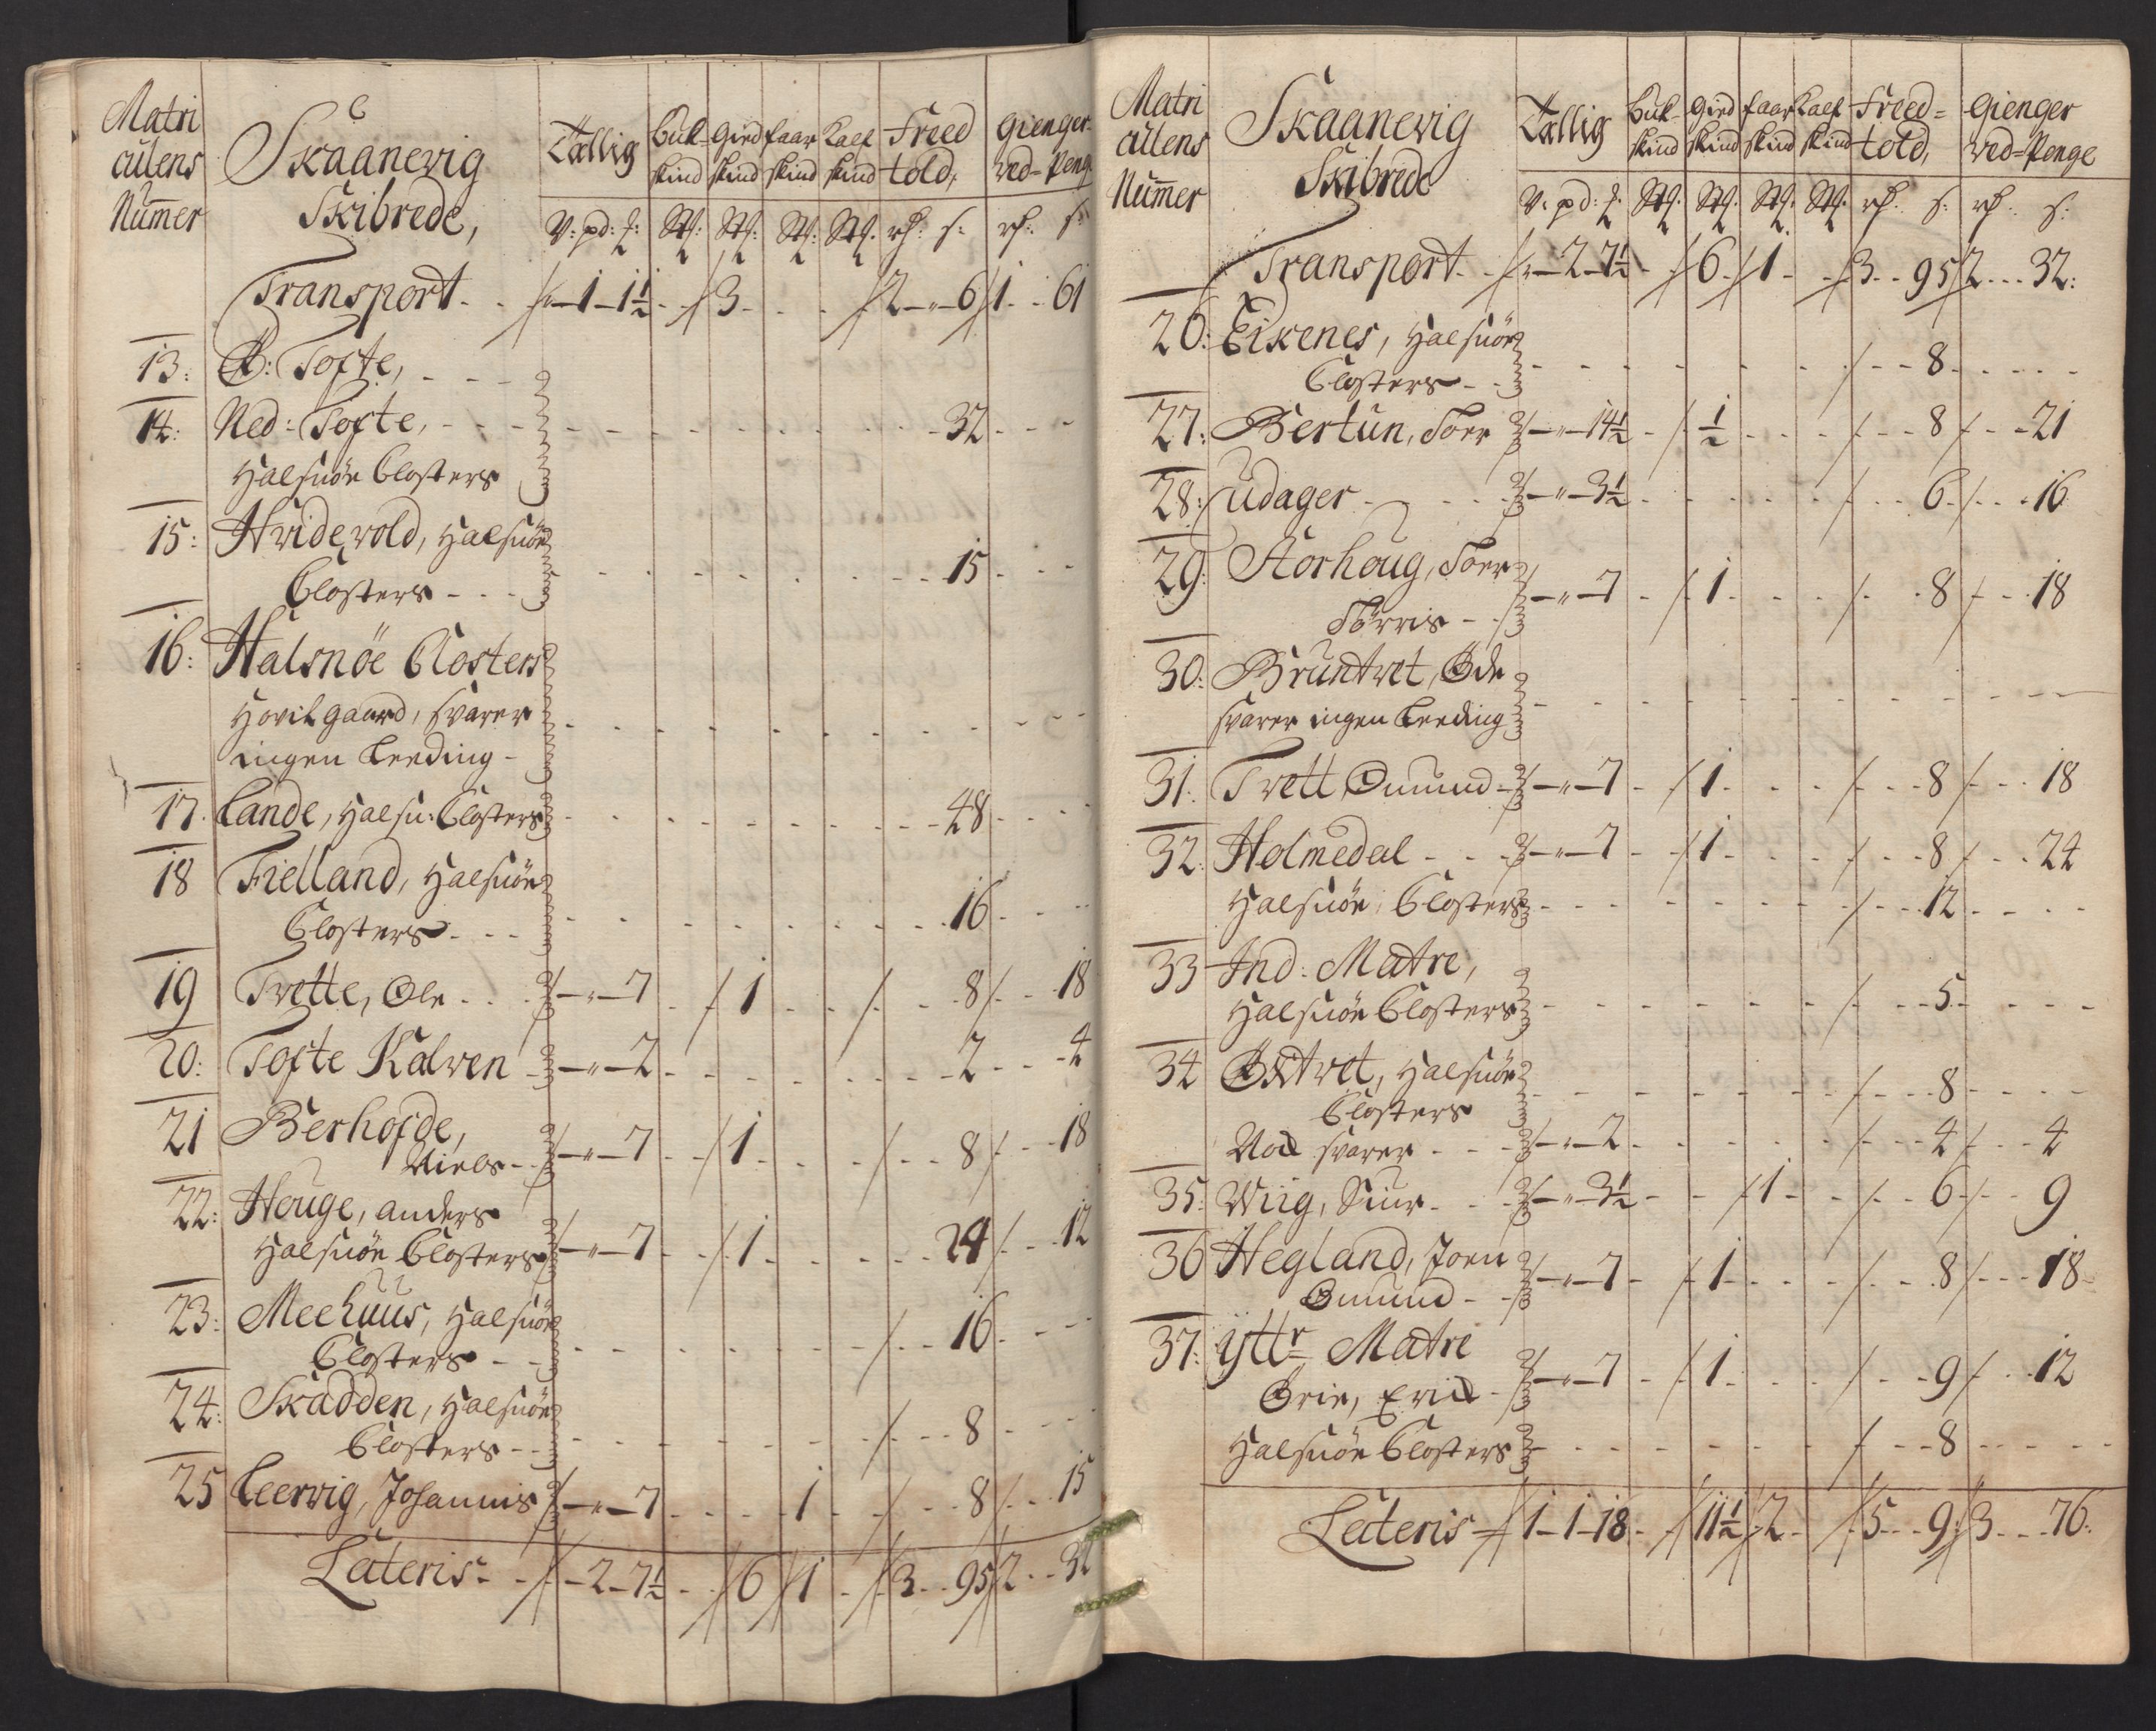 Matri
culens
Num̄er
Skaanevig
Skibrede,
Tallig Buk- Gied faar Kalf Freed Gienger
skind skind skind skind told, ved-Peng
V: pd: Stk: Stk: Stk: Stk. s: s:
Transport. - 1 - 1½ - 3 - 2 - 6 1 - 61
13: Ø: Tofte,
14: Ned: Tofte, - 32
Halsnöe Closters
15: Hvidevold, Halsnöe
Closters - 15
16: Halsnöe Closters
Hovitgaard, svarer
ingen Leeding -
17. Lande, Halsn: Closters - 48
18 Fielland, Halsnöe
Closters - 16
19 Tvette, Ole - " - 7 - 1 - 8 - 18
20: Tofte Kalven - " - 2 - 2 - 4
21 Berhofde,
Niels - " - 7 - 1 - 8 - 18
22: Houge, anders
Halsnöe Closters - " - 7 - 1 - 24 - 12
23: Meehuus, Halsnöe
Closters - 16
24: Skadden, Halsnöe
Closters - 8
25 Leervig, Johannis - " - 7 - 1 - 8 - 15
Lateris - 2 - 7½ - 6 1 - 3 - 95 2 - 32
Matri
culens
Num̄er
Skaanevig
Skibrede
Tallig Buk- Gied faar Kalf Freed= Gienger
skind skind skind skind told, ved=Penge
V. pd: Stk: Stk: Stk: Stk. s: s:
Transport - " - 2 - 7½ - 6 1 - 3 - 95 2 - 32:
26: Eikenes, Halsnöe
Closters - 8
27: Bertun, Toer - " - 14½ - ½ - 8 - 21
28: Udager - " - 3½ - 6 - 16
29: Storhoug, Toer
Törris - " - 7 - 1 - 8 - 18
30: Bruntvet, Öde
svarer ingen Leeding
31: Tvett Omund - " - 7 - 1 - 8 - 18
32: Holmedal - " - 7 - 1 - 8 - 24
Halsnöe Closters - 12
33 Ind: Matre,
Halsnöe Closters - 5
34 Östvet, Halsnöe
Closters - 8
svarer - " - 2 - 4 - 4
35: Wiig, Siur - " - 3½ - 1 - 6 - 9
36 Hegland, Joen
Omund - " - 7 - 1 - 8 - 18
37: Yttr Matre
Brie, Erich - " - 7 - 1 - 9 - 12
Halsnöe Closters - 8
Lateris - 1 - 1 - 18 - 11½ 2 - 5 - 9 3 - 76: